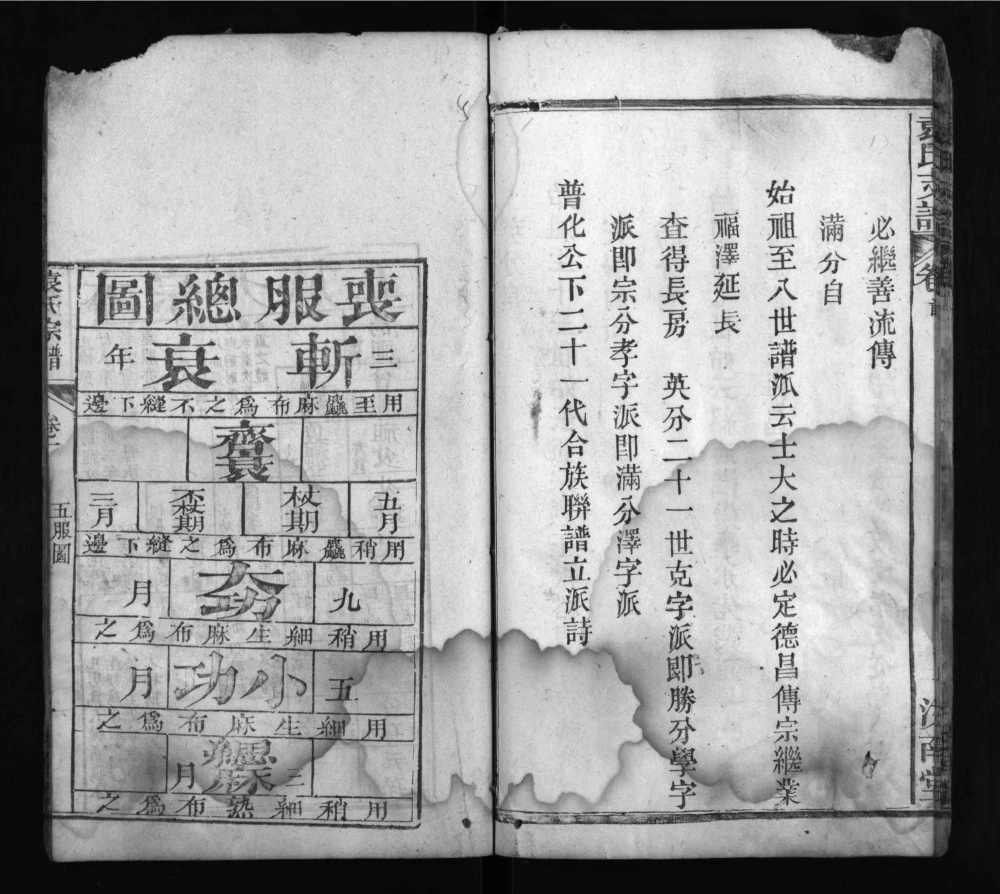 袁氏支譜 卷首
汝南堂
必繼善流傳
滿分自
始祖至八世譜派云士大之時必定德昌傳宗繼業
福澤延長
查得長房 英分二十一世克字派即勝分學字
派即宗分孝字派即滿分澤字派
普化公下二十一代合族聯譜立派詩
喪服總圖
三年 斬衰
用至麤麻布為之不縫下邊
齊衰
五月 杖期 不杖期 三月
用稍麤麻布為之縫下邊
九月 大功
用稍細生麻布為之
五月 小功
用細生麻布為之
三月 緦麻
用稍細熟布為之
袁氏宗譜
五服圖